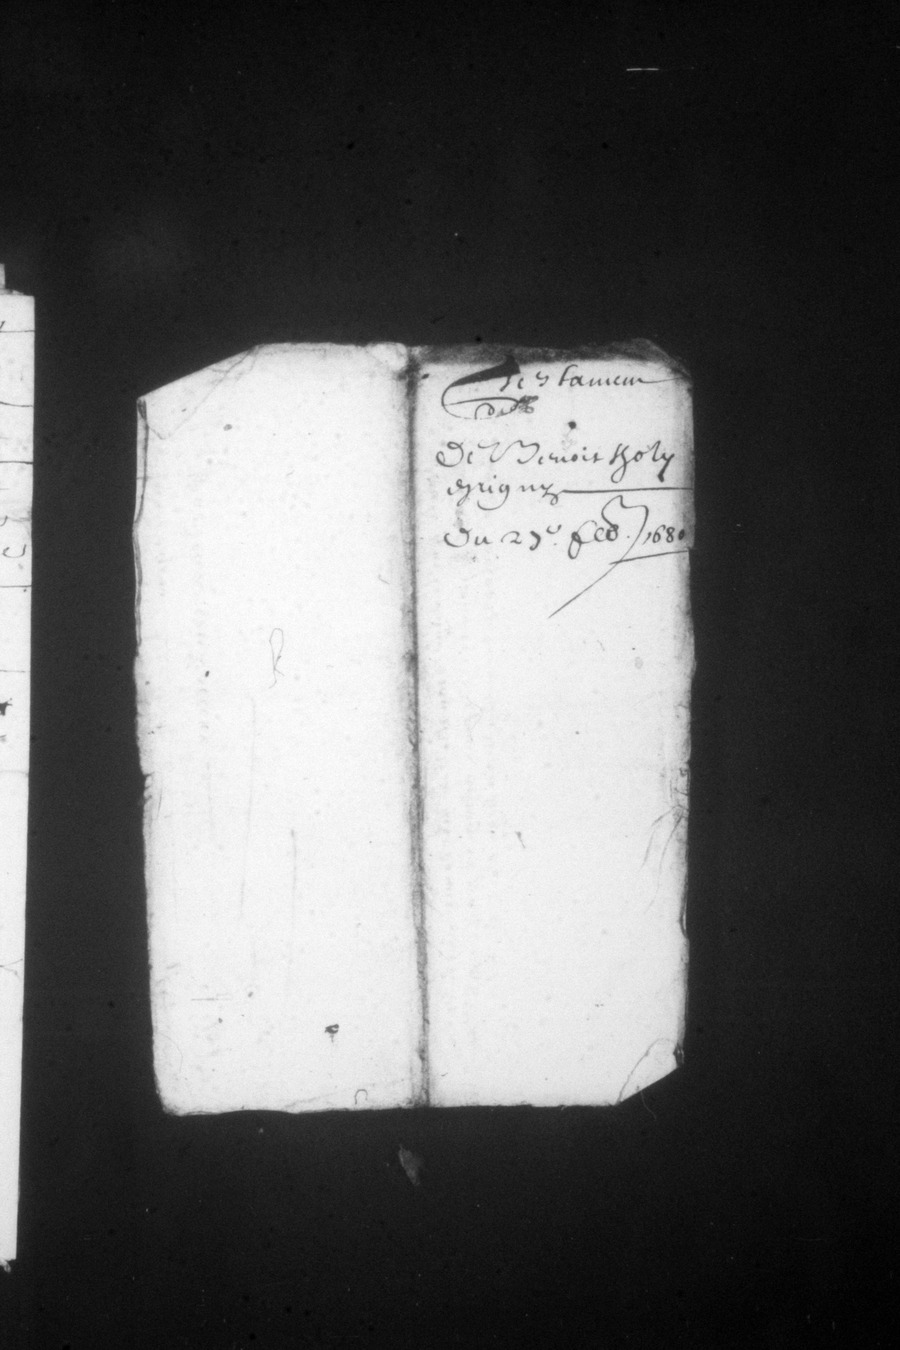 Testamem
De Benoist Joly
grigny
Du 27e. feb. 1680